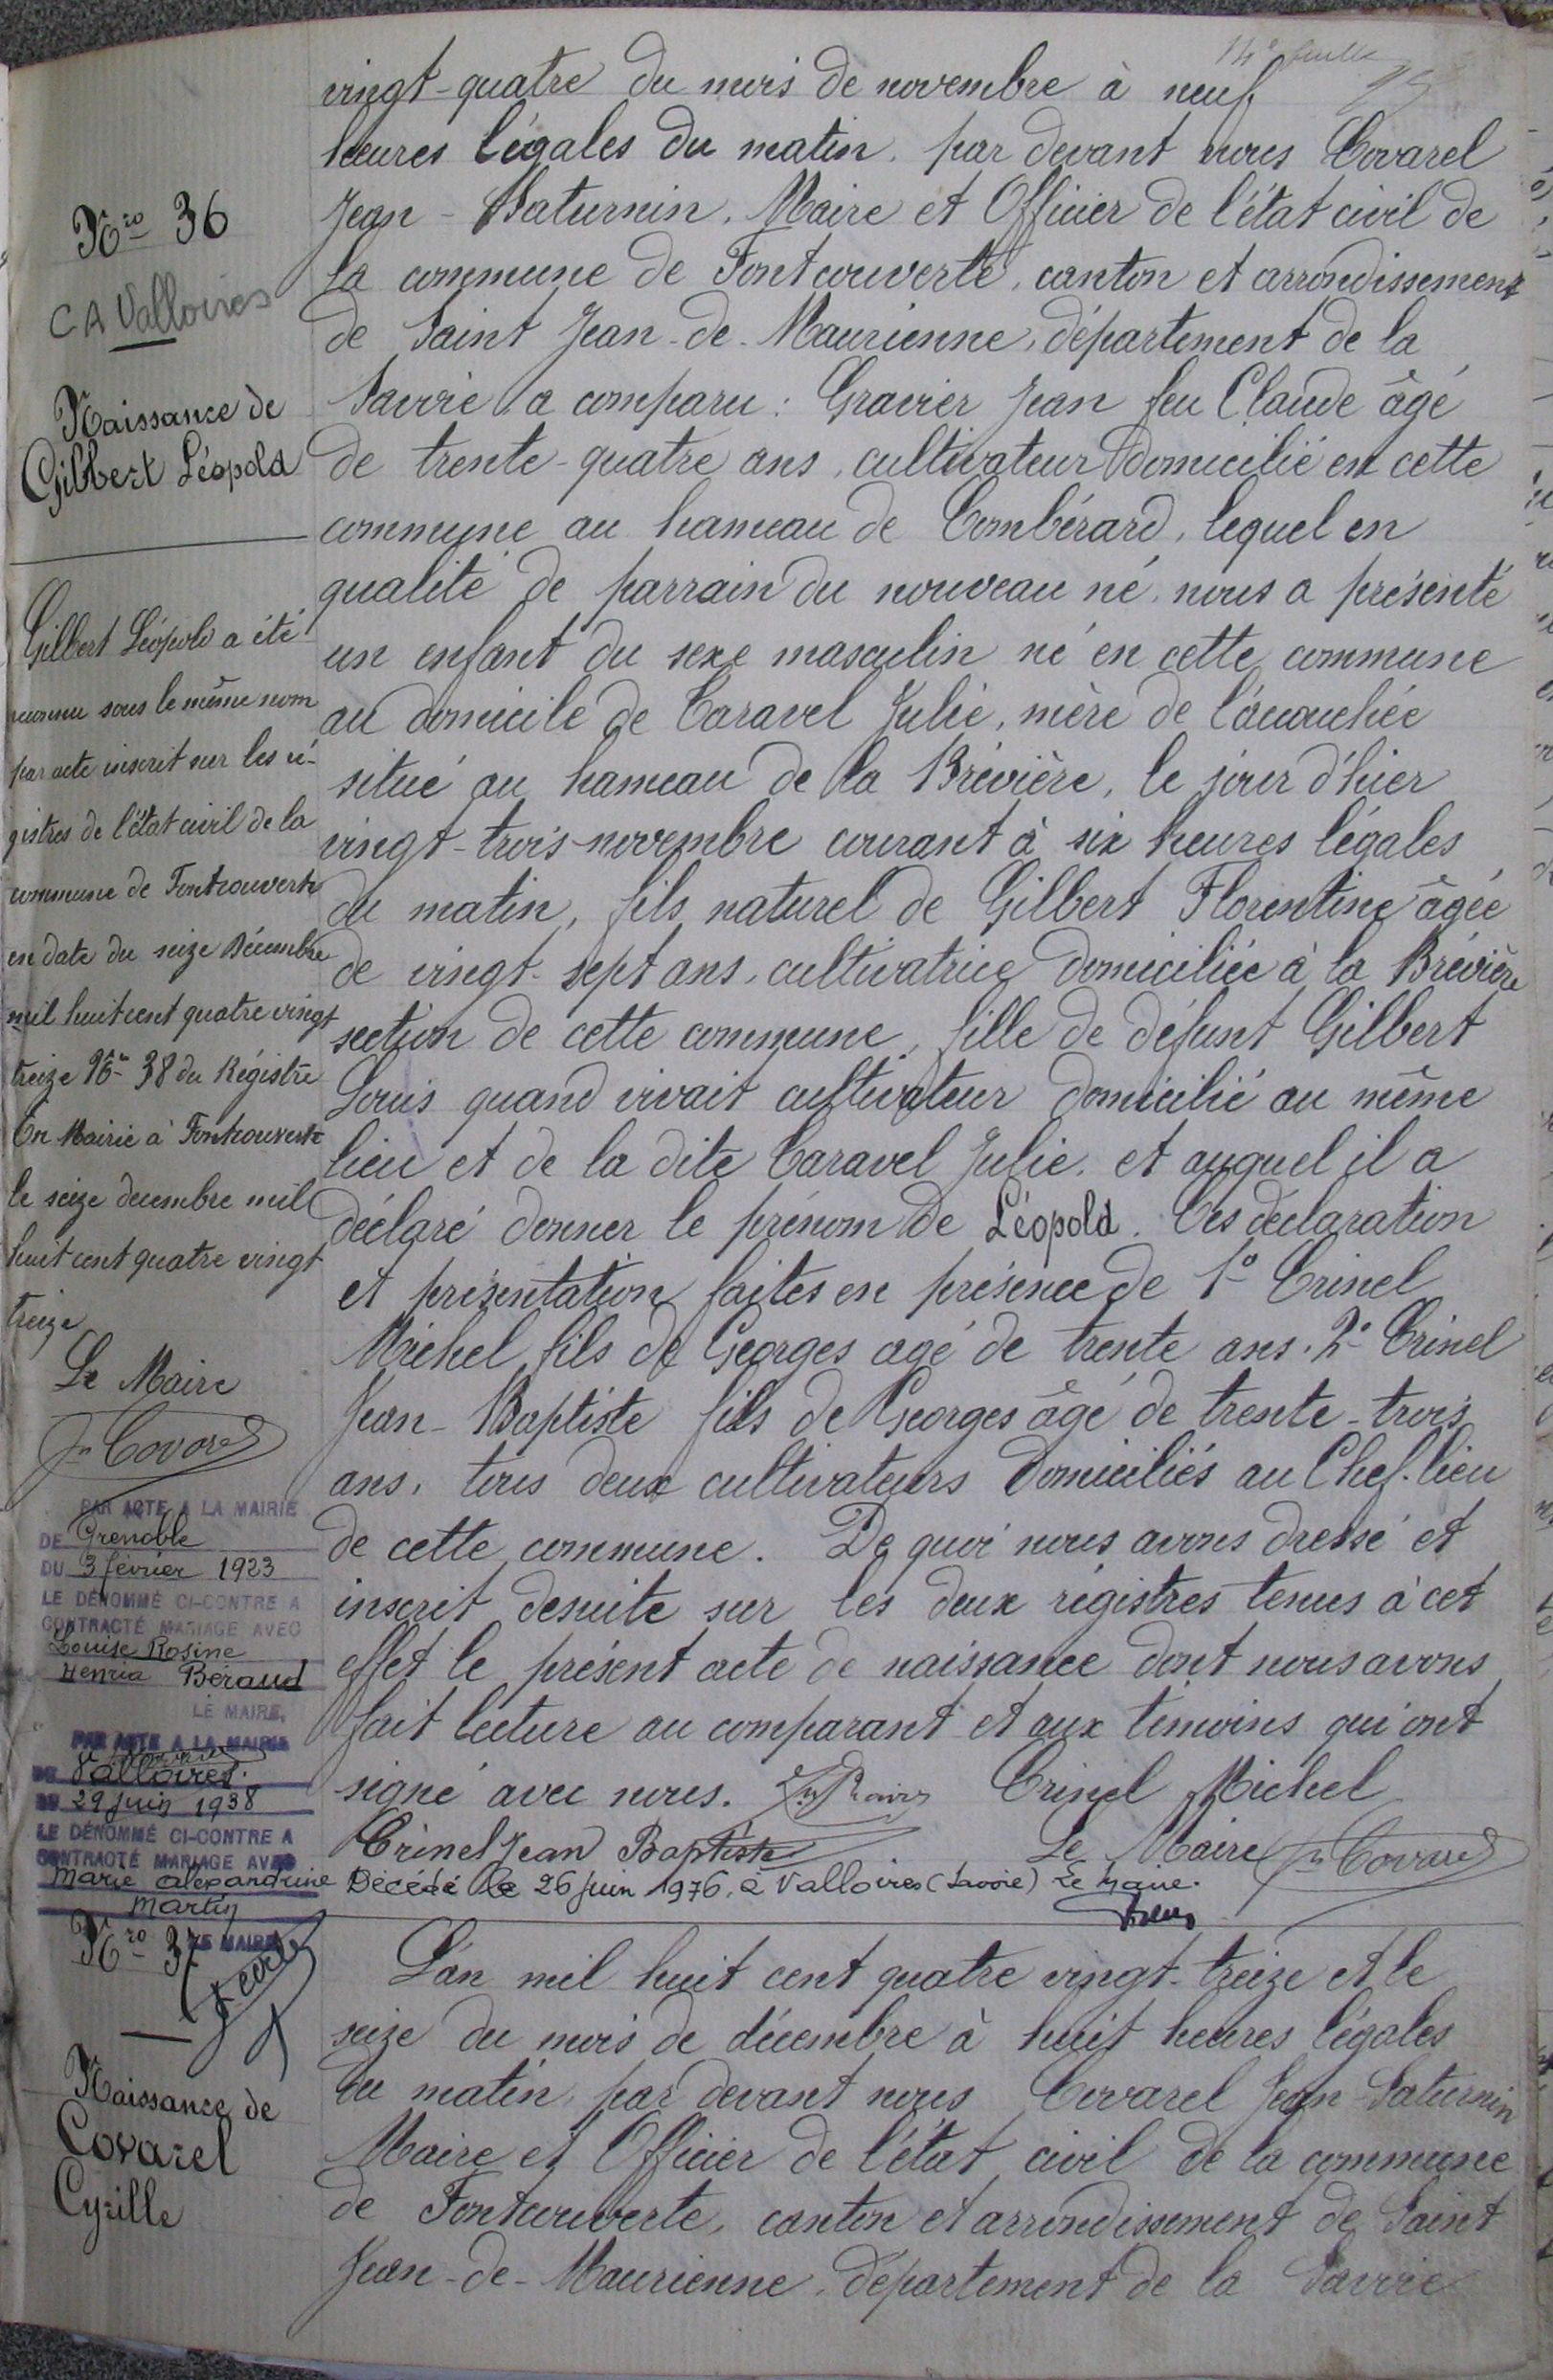 14e feuille
vingt-quatre du mois de novembre à neuf
heures légales du matin. par devant nous Covarel
Jean-Saturnin, Maire et Officier de l'état civil de
la commune de Fontcouverte, canton et arrondissement
de Saint Jean-de-Maurienne, département de la
Savoie a comparu : Gravier Jean feu Claude âgé
de trente-quatre ans, cultivateur domicilié en cette
commune au hameau de Combérard, lequel en
qualité de parrain du nouveau né, nous a présenté
un enfant du sexe masculin né en cette commune
au domicile de Caravel Julie, mère de l'accouchée
situé au hameau de la Brévière, le jour d'hier
vingt-trois novembre courant à six heures légales
du matin, fils naturel de Gilbert Florentine âgée
de vingt-sept ans, cultivatrice domiciliée à la Brévière
section de cette commune, fille de défunt Gilbert
Louis quand vivait cultivateur domicilié au même
lieu et de la dite Caravel Julie. et auquel il a
déclaré donner le prénom de Léopold. Ces déclaration
et présentation faites en présence de 1° Crinel
Michel fils de Georges agé de trente ans. 2° Crinel
Jean-Baptiste fils de Georges âgé de trente-trois
ans, tous deux cultivateurs domiciliés au Chef-lieu
de cette commune. De quoi nous avons dressé et
inscrit desuite sur les deux régistres tenus à cet
effet le présent acte de naissance dont nous avons
fait lecture au comparant et aux témoins qui ont
signé avec nous. Crinel Michel
Crinel Jean Baptiste Le Maire Jn Covarel
Décédé le 26 juin 1976, à Valloires (Savoie) Le Maire.
Nro 36
CA Valloires
Naissance de
Gilbert Léopold
Gilbert Léopold a été
reconnu sous le même nom
par acte inscrit sur les ré-
gistres de l'état civil de la
commune de Fontcouverte
en date du seize Décembre
mil huit cent quatre vingt
treize No 38 du Régistre
En Mairie à Fontcouverte
le seize decembre mil
huit cent quatre vingt
treize
Le Maire
Jn Covarel
PAR ACTE A LA MAIRIE
DE Grenoble
DU 3 février 1923
LE DÉNOMMÉ CI-CONTRE A
CONTRACTÉ MARIAGE AVEC
Louise Rosine
Henria Béraud
LE MAIRE,
PAR ACTE A LA MAIRIE
DE Valloires
DU 29 juin 1938
LE DÉNOMMÉ CI-CONTRE A
CONTRACTÉ MARIAGE AVEC
Marie Alexandrine
Martin
LE MAIRE
Nro 37
Naissance de
Covarel
Cyrille
L'an mil huit cent quatre vingt-treize et le
seize du mois de décembre à huit heures légales
du matin, par devant nous Covarel Jean-Saturnin
Maire et Officier de l'état civil de la commune
de Fontcouverte, canton et arrondissement de Saint
Jean-de-Maurienne, département de la Savoie